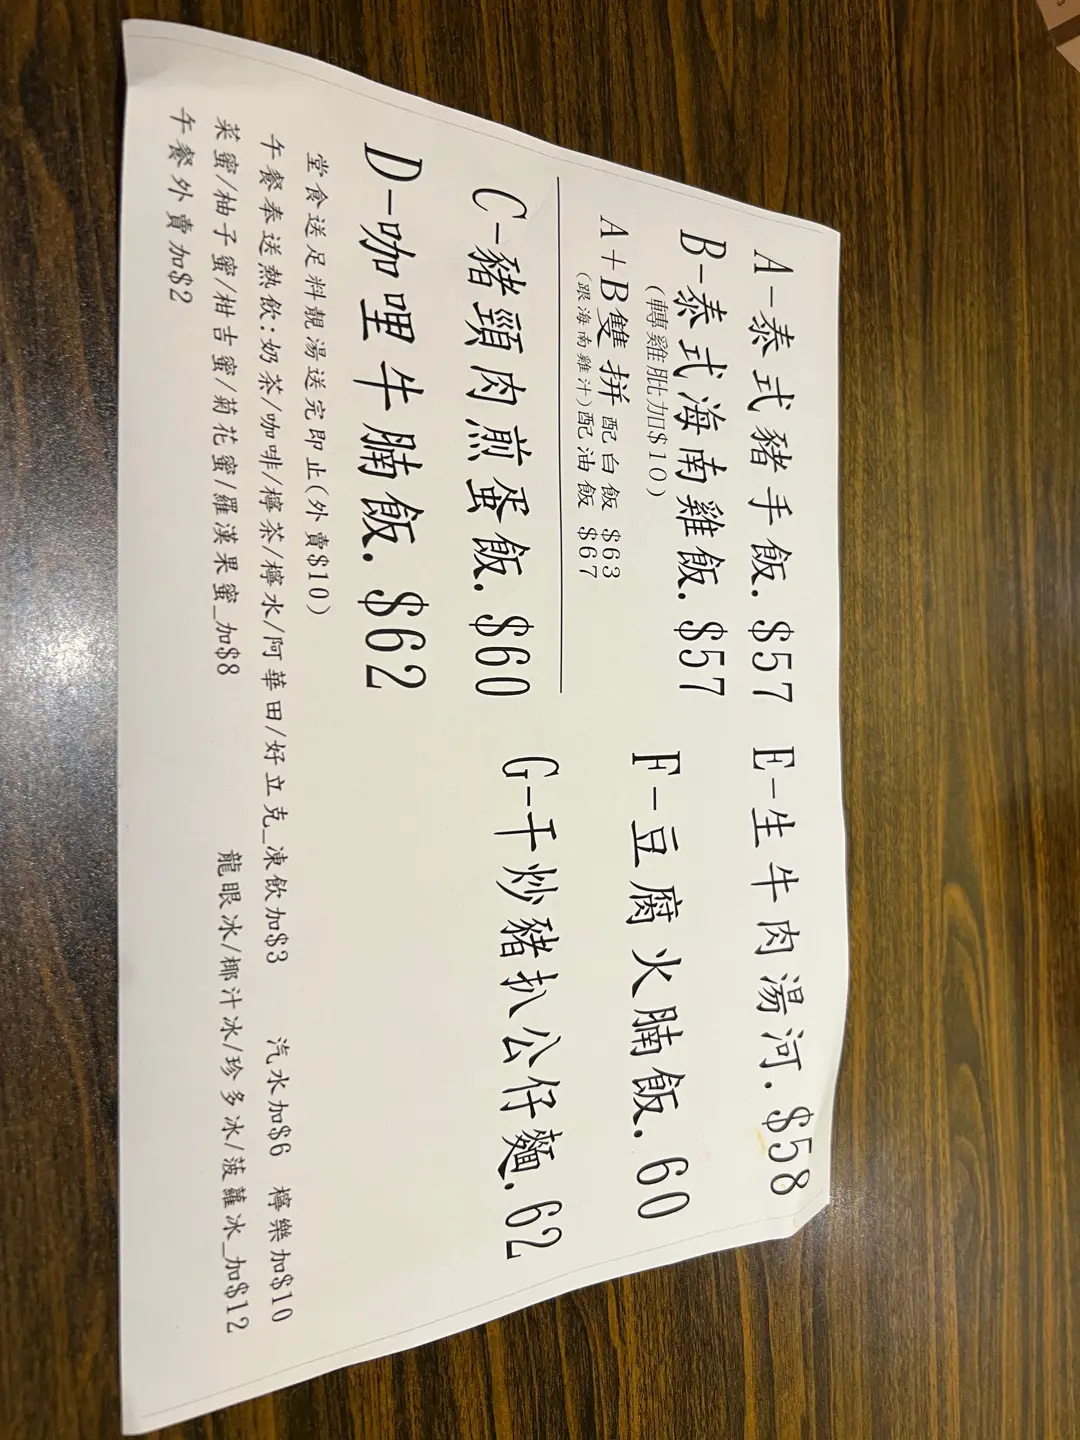 A-泰式豬手飯. $57
B-泰式海南雞飯. $57
(轉雞肶加$10)
A+B雙拼配白飯 $63
(跟海南雞汁)配油飯 $67
C-豬頸肉煎蛋飯. $60
D-咖哩牛腩飯. $62
E-生牛肉湯河. $58
F-豆腐火腩飯. 60
G-干炒豬扒公仔麵. 62
堂食送足料靚湯送完即止(外賣$10)
午餐奉送熱飲:奶茶/咖啡/檸茶/檸水/阿華田/好立克_凍飲加$3 汽水加$6 檸樂加$10
菓蜜/柚子蜜/柑吉蜜/菊花蜜/羅漢果蜜_加$8 龍眼冰/椰汁冰/珍多冰/菠蘿冰_加$12
午餐外賣加$2